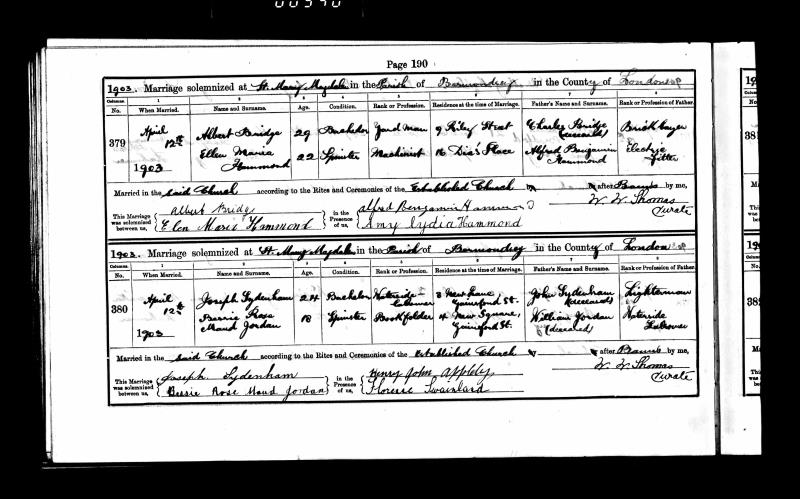 Page 190
1903. Marriage solemnized at St. Mary Magdalen in the Parish of Bermondsey in the County of London
Columns. 1 2 3 4 5 6 7 8
No. When Married. Name and Surname. Age. Condition. Rank or Profession. Residence at the time of Marriage. Father's Name and Surname. Rank or Profession of Father.
379 April 12th 1903 Albert Bridge 29 Bachelor Yard man 9 Riley Street Charles Bridge (deceased) Bricklayer
Ellen Maria Hammond 22 Spinster Machinist 16 Place Alfred Benjamin Hammond Electric Fitter
Married in the said Church according to the Rites and Ceremonies of the Established Church after Banns by me,
W. W. Thomas
Curate
This Marriage was solemnized between us, Albert Bridge in the Presence of us, Alfred Benjamin Hammond
Ellen Maria Hammond Amy Lydia Hammond
1903. Marriage solemnized at St. Mary Magdalen in the Parish of Bermondsey in the County of London
Columns. 1 2 3 4 5 6 7 8
No. When Married. Name and Surname. Age. Condition. Rank or Profession. Residence at the time of Marriage. Father's Name and Surname. Rank or Profession of Father.
380 April 12th 1903 Joseph Lydenham 24 Bachelor Waterside Labourer 3 New Lane Gainsford St. John Lydenham (deceased) Lighterman
Bessie Rose Maud Jordan 18 Spinster Bookfolder 4 New Square, Gainsford St. William Jordan (deceased) Waterside Labourer
Married in the said Church according to the Rites and Ceremonies of the Established Church after Banns by me,
W. W. Thomas
Curate
This Marriage was solemnized between us, Joseph Lydenham in the Presence of us, Henry John Appleby
Bessie Rose Maud Jordan Florence Swainland